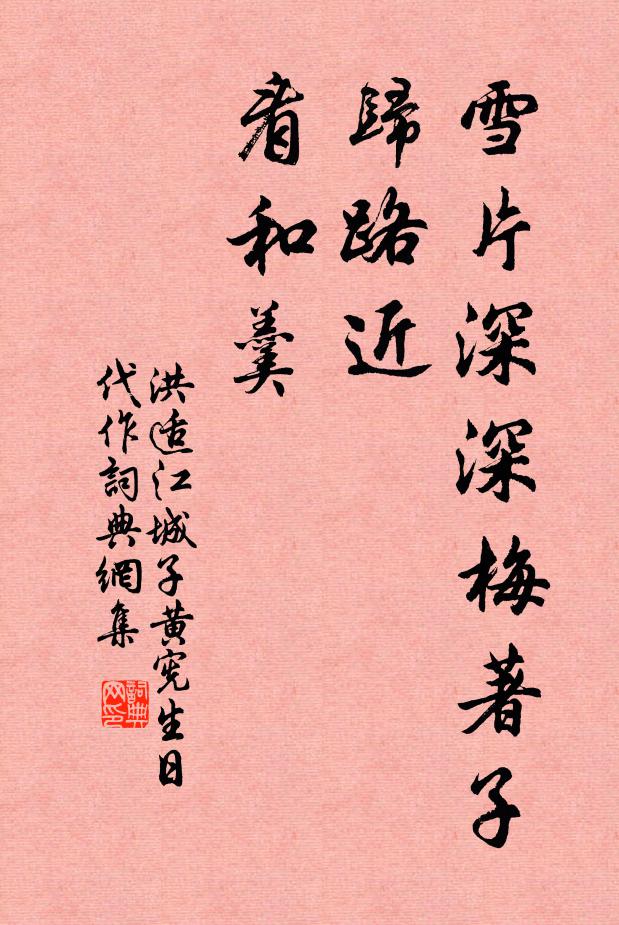 雪片深深梅著子
歸路近
看和羹
洪适江城子黃憲生日
代作詞典網集
詞典网印